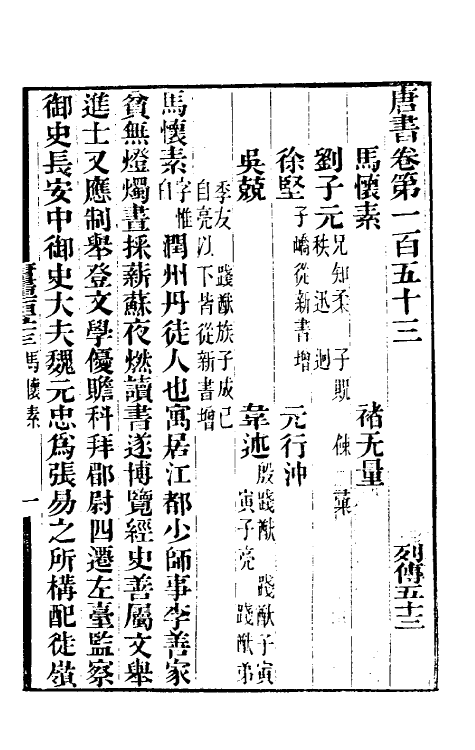 唐書卷第一百五十三　列傳五十三
馬懷素　褚无量
劉子元 兄知柔　子貺　餗　彙　秩　迅　迥
徐堅 子嶠從新書增　元行沖
吳兢　韋述 殷踐猷　踐猷子寅　寅子亮　踐猷弟
季友　踐猷族子成己
自亮以下皆從新書增
馬懷素 字惟白 潤州丹徒人也寓居江都少師事李善家
貧無燈燭晝採薪蘇夜燃讀書遂博覽經史善屬文舉
進士又應制舉登文學優贍科拜郿尉四遷左臺監察
御史長安中御史大夫魏元忠爲張易之所構配徒嶺
馬懷素
一